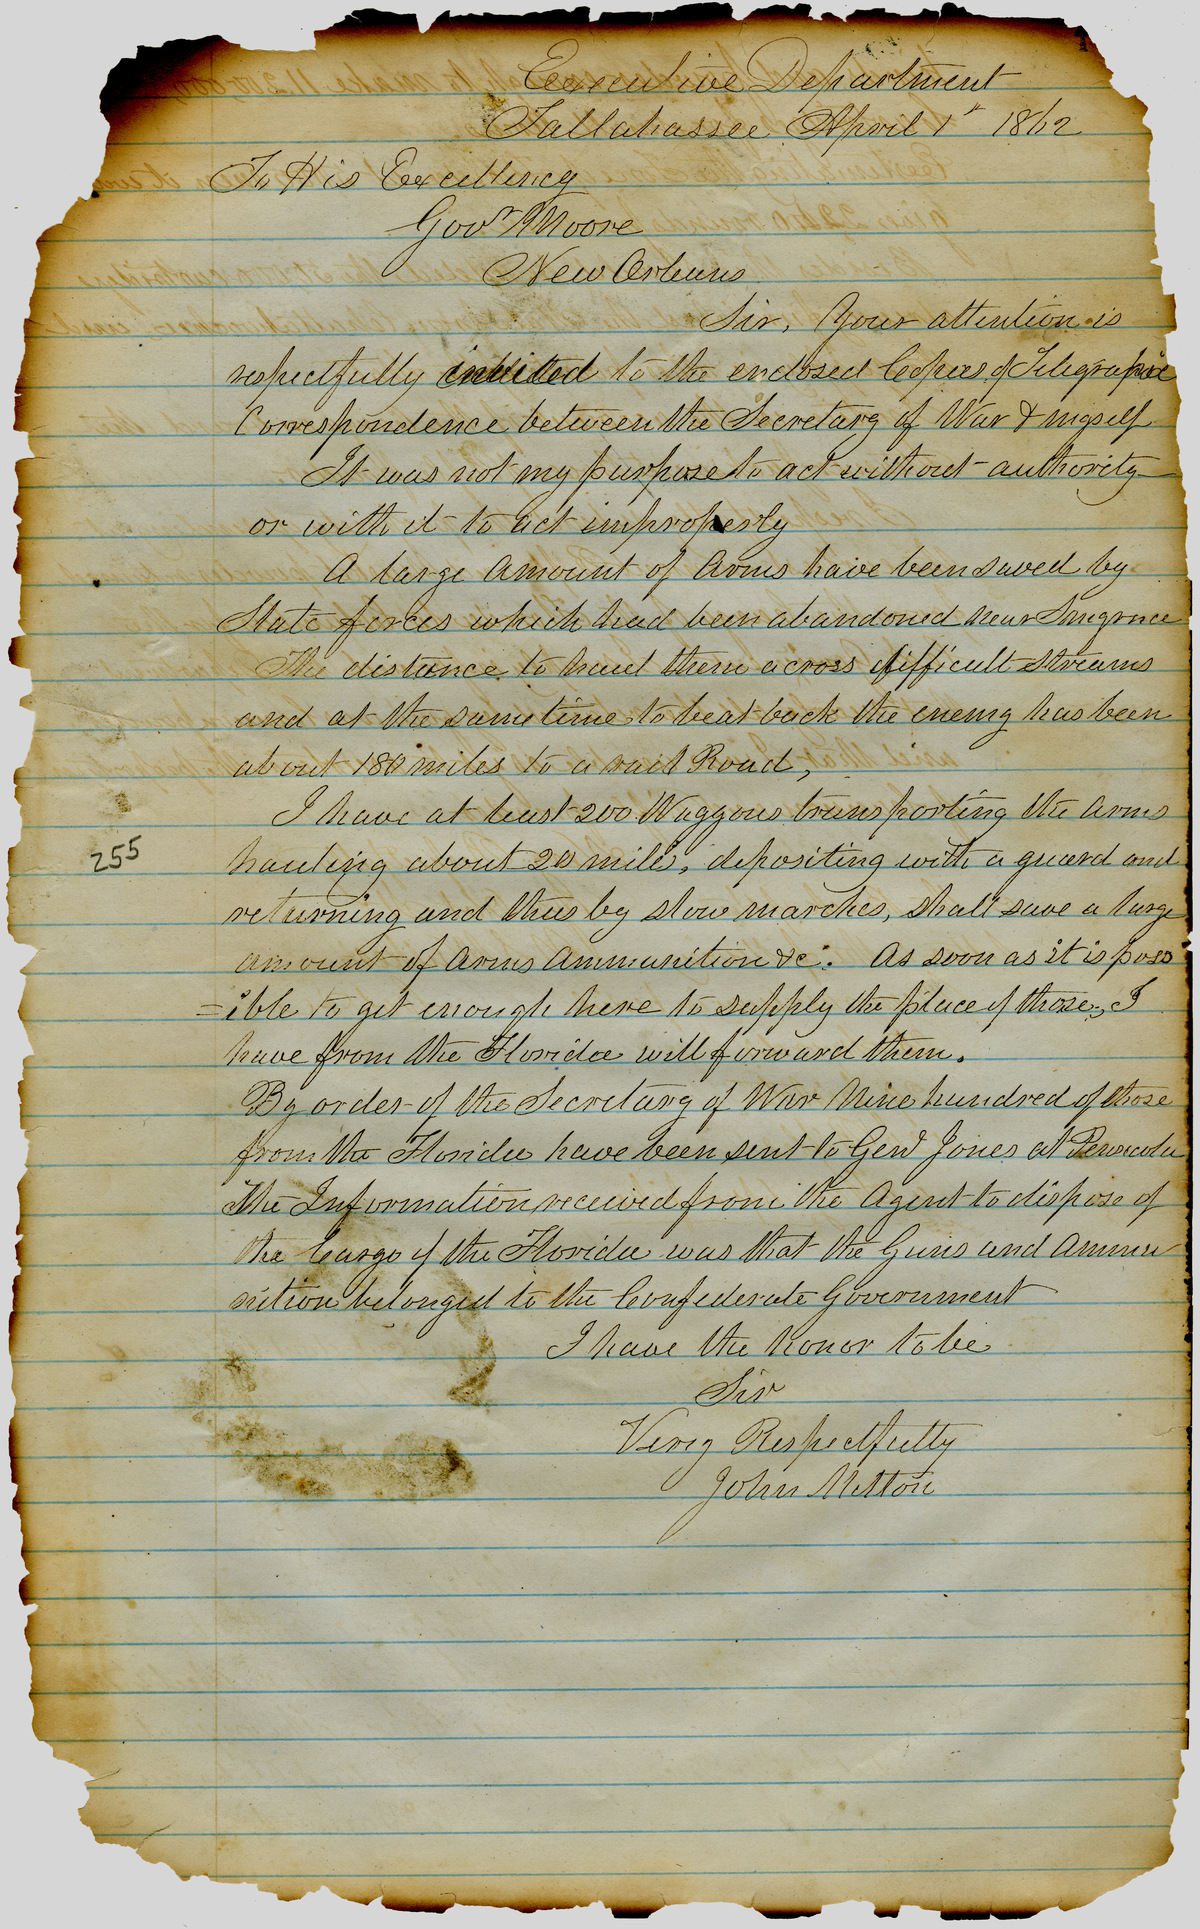 Executive Department
Tallahassee April 1st 1862
To His Excellency
Govr Moore
New Orleans
Sir, Your attention is
respectfully invited to the enclosed Copies of Telegraphic
Correspondence between the Secretary of War & myself
It was not my purpose to act without authority
or with it to act improperly
A large amount of Arms have been saved by
State forces which had been abandoned near Smyrnee
The distance to haul them across difficult streams
and at the same time to beat back the enemy has been
about 180 miles to a rail Road,
I have at least 200 Waggons transporting the arms
hauling about 20 mils, depositing with a guard and
returning and thus by slow marches, shall save a large
amount of Arms Ammunition &c. As soon as it is poss
=ible to get enough here to supply the place of those, I
have from the Florida will forward them.
By order of the Secretary of War Nine hundred of those
from the Florida have been sent to Genl Jones at Pensacola
The Information received from the Agent to dispose of
the Cargo of the Florida was that the Guns and Ammu
nition belonged to the Confederate Government
I have the honor to be
Sir
Very Respectfully
John Milton
255